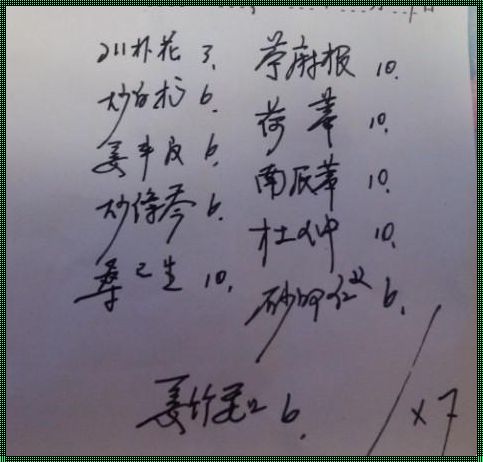 川朴花 3. 苎麻根 10.
炒白术 6. 荷蒂 10.
姜半夏 6. 南瓜蒂 10.
炒条芩 6. 杜仲 10.
桑己生 10. 砂叩仁 6.
姜竹茹 6.
x7